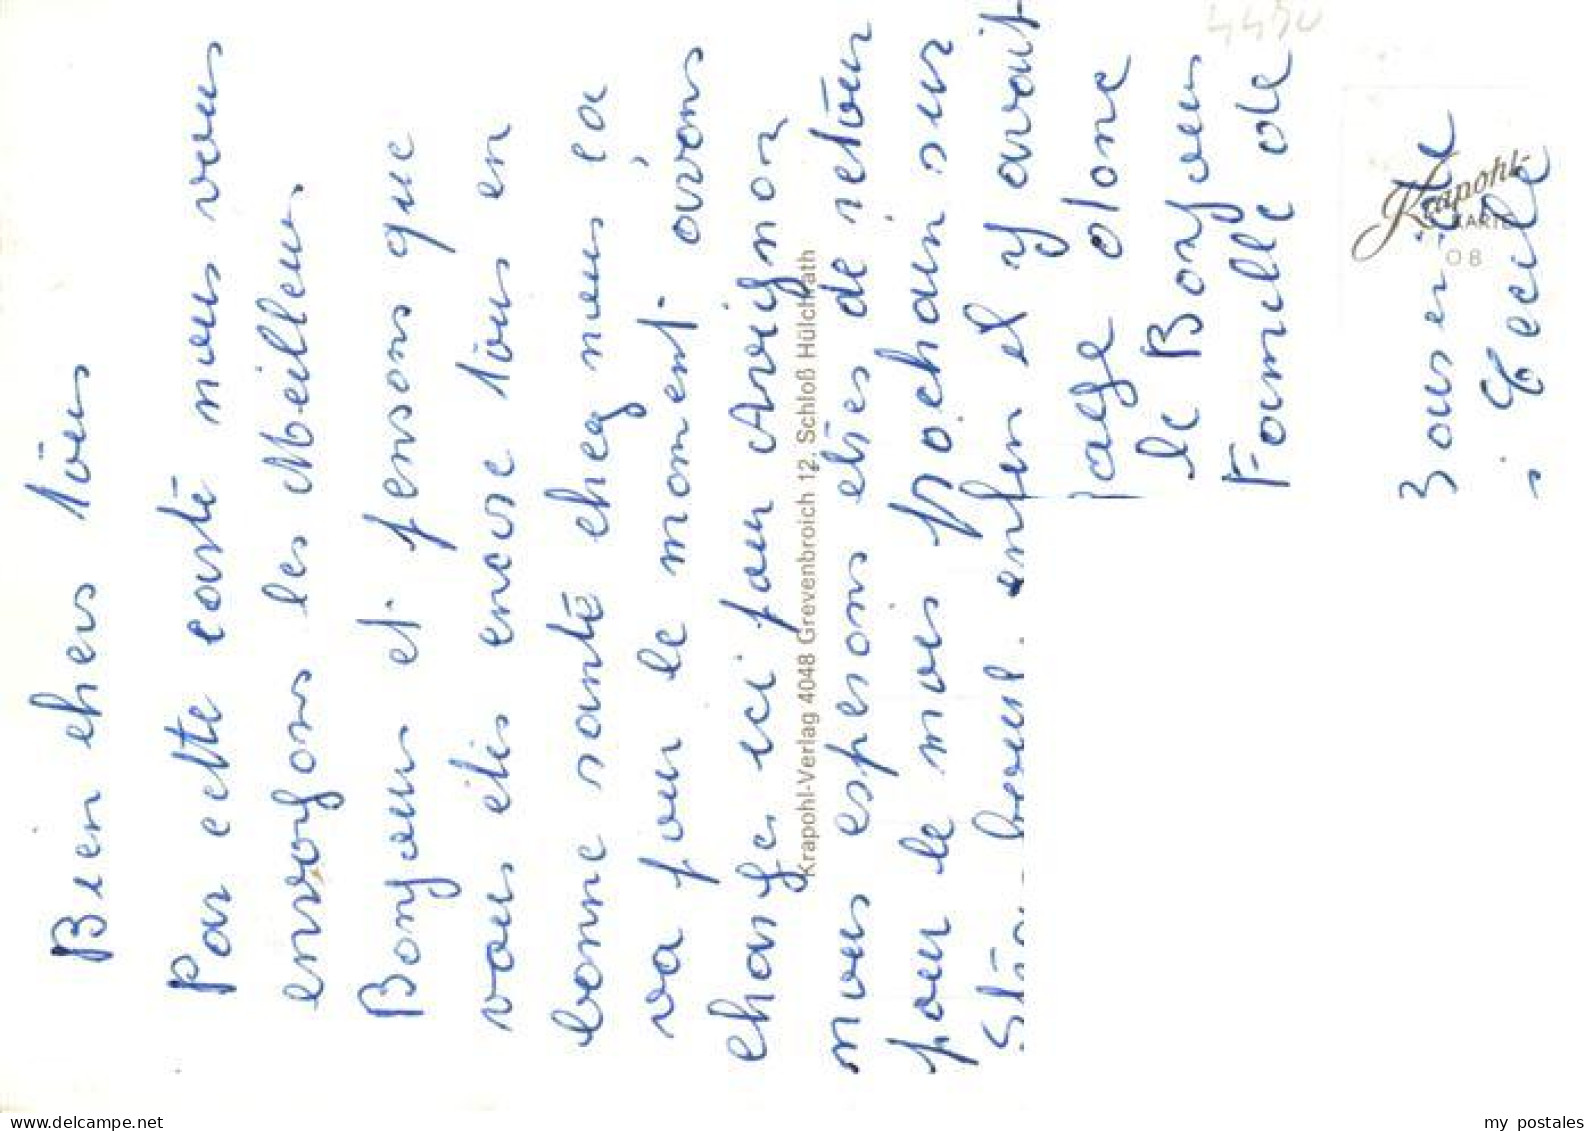 Bien chers tous
Par cette carte nous vous
envoyons les Meilleurs
Bonjour et pensons que
vous êtes encore tous en
bonne santé chez nous ça
va pour le moment. avons
charger ici pour Avignon
nous esperons etres de retour
pour le mois prochain sur
enfin et y avait
olonc
le Bonjour
Famille de
Cecile
Krapohl-Verlag 4048 Grevenbroich 12, Schloß Hülchrath
Krapohl-
KARTE
08
4490
delcampe.net
my postales